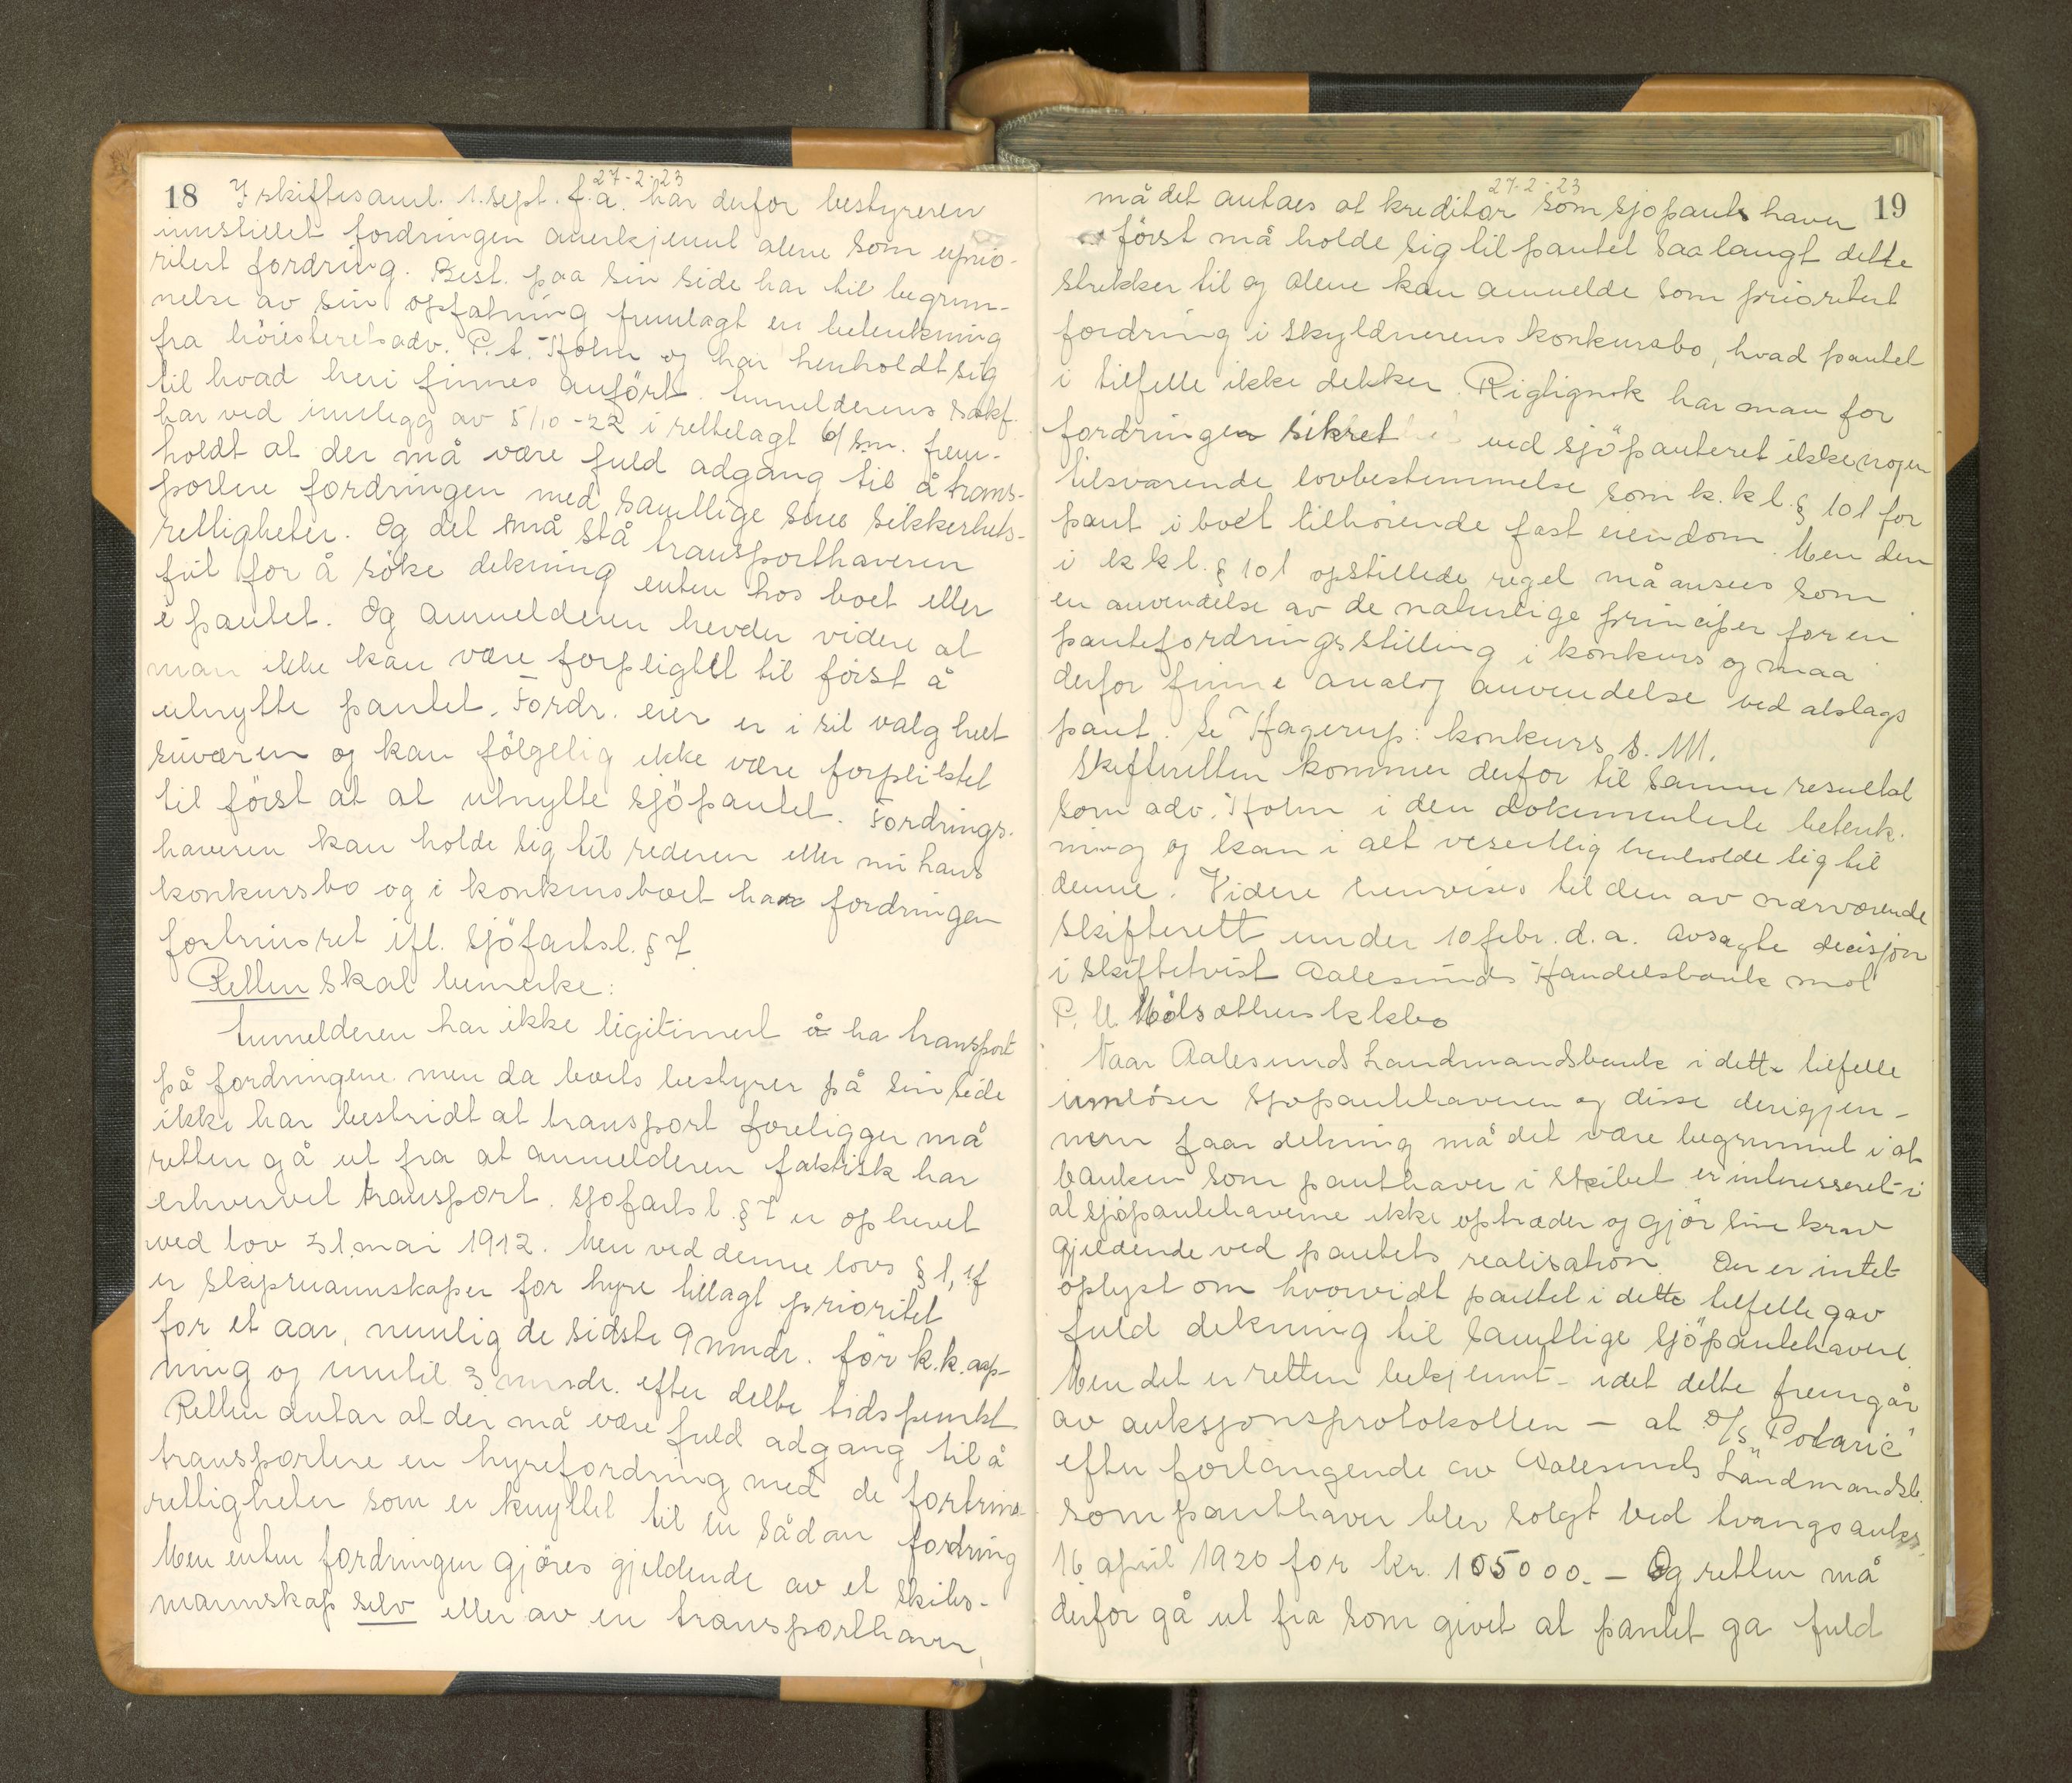 27-2-23
18 I skiftesaml. 1. sept. f.a. har derfor bestyreren
innstillet fordringen anerkjennt alene som uprio-
ritert fordring. Best. paa sin side har til begrun-
nelse av sin opfatning fremlagt en betenkning
fra höiesteretsadv. P. A. Holm og har henholdt sig
til hvad heri finnes anfört. Anmelderens sakf.
har ved innlegg av 5/10-22 i rettelagt 6/s.m. frem-
holdt at der må være fuld adgang til å trans-
portere fordringen med samtlige sine sikkerhets-
rettigheter. Og det må stå transporthaveren
frit for å söke dekning enten hos boet eller
i pantet. Og anmelderen hevder videre at
man ikke kan være forpligtet til först å
utnytte pantet. Fordr. eier er i sit valg helt
suveren og kan fölgelig ikke være forpliktet
til först at at utnytte sjöpantet. Fordrings-
haveren kan holde sig til rederen eller nu hans
konkursbo og i konkursboet har fordringen
fortrinsret ifl. sjöfartsl. § 7
Retten skal bemerke:
Anmelderen har ikke ligitimert å ha transport
på fordringene men da boets bestyrer på sin side
ikke har bestridt at transport foreligger må
retten gå ut fra at anmelderen faktisk har
erhvervet transport. Sjøfartsl. § 7 er ophevet
ved lov 31. mai 1912. Men ved denne lovs § 1, if
er skipsmannskaper for hyre tillagt prioritet
for et aar, nemlig de sidste 9 mndr. för k.k. aap-
ning og inntil 3 mndr. efter dette tidspunkt
Retten antar at der må være fuld adgang til å
transportere en hyrefordring med de fortrins-
rettigheter som er knyttet til en sådan fordring
Men enten fordringen gjöres gjeldende av et skibs-
mannskap selv eller av en transporthaver,
27-2-23
må det antaes at kreditor som sjøpantshaver 19
först må holde sig til pantet saa langt dette
strekker til og alene kan anmelde som prioritert
fordring i skyldnerens konkursbo, hvad pantet
i tilfelle ikke dekker. Rigtignok har man for
fordringer sikret ved sjöpanteret ikke nogen
tilsvarende lovbestemmelse som k.k.l. § 101 for
pant i boet tilhörende fast eiendom. Men den
i k.k.l. § 101 opstillede regel må ansees som
en anvendelse av de naturlige principer for en
pantefordrings stilling i konkurs og maa
derfor finne analog anvendelse ved alslags
pant. Se Hagerup: konkurs s. 111.
Skifteretten kommer derfor til samme resultat
som adv. Holm i den dokumenterte betenk-
ning og kan i alt vesentlig henholde sig til
denne. Videre henvises til den av nærværende
skifterett under 10 febr. d.a. avsagte decisjon
i skiftetvist Aalesunds Handelsbank mot
P. U. kkbo
Naar Aalesunds Landmandsbank i dette tilfelle
innlöser sjøpantehaveren og disse derigjen-
nem faar dekning må det være begrunnet i at
banken som panthaver i skibet er interesseret i
at sjöpantehaverne ikke optræder og gjör sine krav
gjeldende ved pantets realisation. Der er intet
oplyst om hvorvidt pantet i dette tilfelle gav
fuld dekning til samtlige sjöpantehavere.
Men det er retten bekjennt – idet dette fremgår
av auksjonsprotokollen – at D/S "Polaric"
efter forlangende av Aalesunds Landmandsb.
som panthaver blev solgt ved tvangsauks.
16 april 1920 for kr. 105000.– Og retten må
derfor gå ut fra som givet at pantet ga fuld